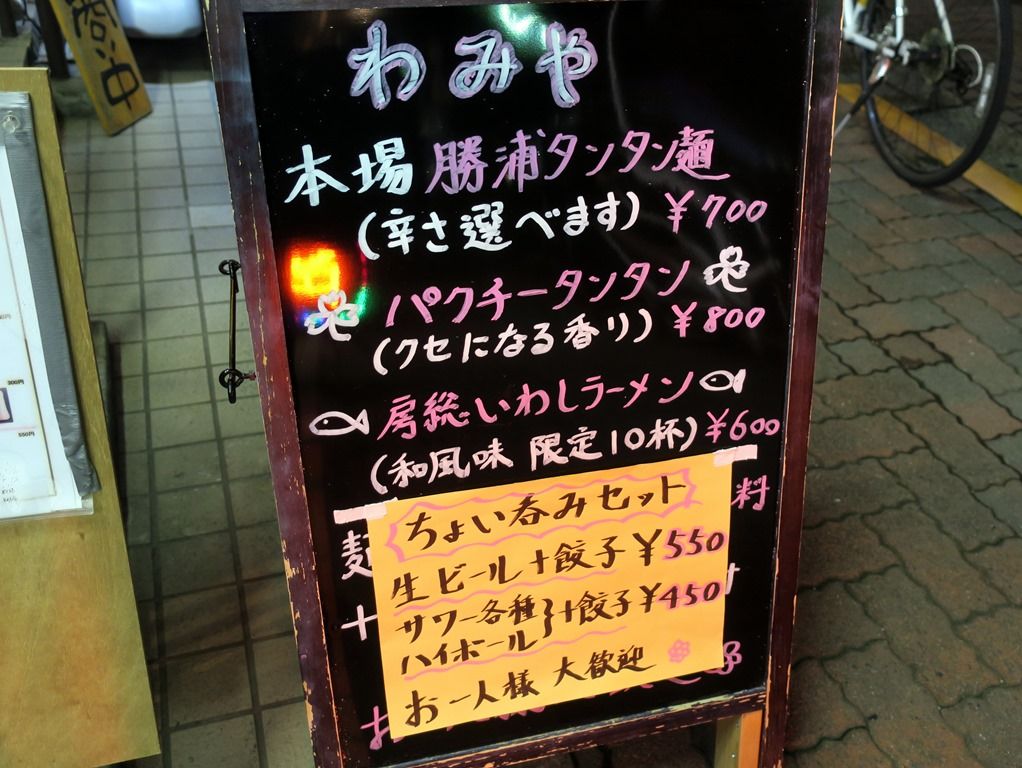 商い中
わみや
本場 勝浦タンタン麺
(辛さ選べます) ¥700
パクチータンタン
(クセになる香り) ¥800
房総いわしラーメン
(和風味 限定10杯) ¥600
料
麺
+
ちょい呑みセット
生ビール+餃子 ¥550
サワー各種
ハイボール }+餃子 ¥450
お一人様 大歓迎
お
300円
550円